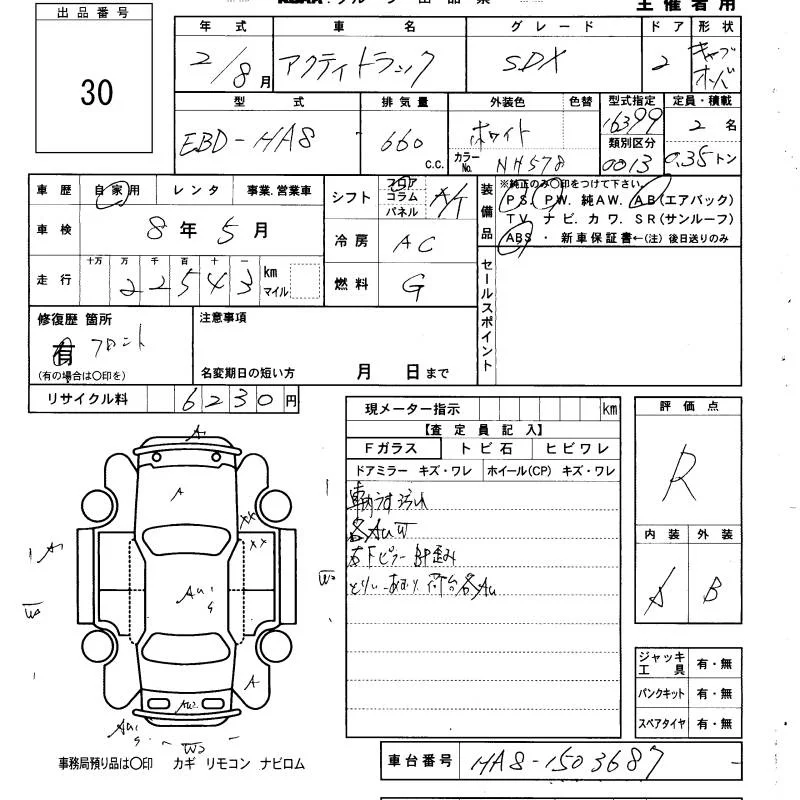 出品番号
30
主催者用
年式 車名 グレード ドア 形状
2/8月 アクティトラック SDX 2 キャブオーバ
型式 排気量 外装色 色替 型式指定 定員・積載
EBD-HA8 660 c.c. ホワイト 16399 2名
カラーNo. NH578 類別区分 0013 0.35トン
車歴 自家用 レンタ 事業.営業車
車検 8年5月
走行 十万 万 千 百 十 一
22543 km マイル
シフト フロア コラム パネル A/T
冷房 AC
燃料 G
装備品 ※純正のみ○印をつけて下さい。
PS. PW. 純AW. AB(エアバック)
TV. ナビ. カワ. SR(サンルーフ)
ABS ・ 新車保証書←(注)後日送りのみ
セールスポイント
修復歴 箇所
有 フロント
(有の場合は○印を)
注意事項
名変期日の短い方 月 日まで
リサイクル料 6230円
現メーター指示 km
【査定員記入】
Fガラス トビ石 ヒビワレ
ドアミラー キズ・ワレ ホイール(CP) キズ・ワレ
各AuW
評価点
R
内装 外装
A B
A
A
XX
XX
A
A
AW
ジャッキ工具 有・無
パンクキット 有・無
スペアタイヤ 有・無
事務局預り品は○印 カギ リモコン ナビロム
車台番号 HA8-1503687